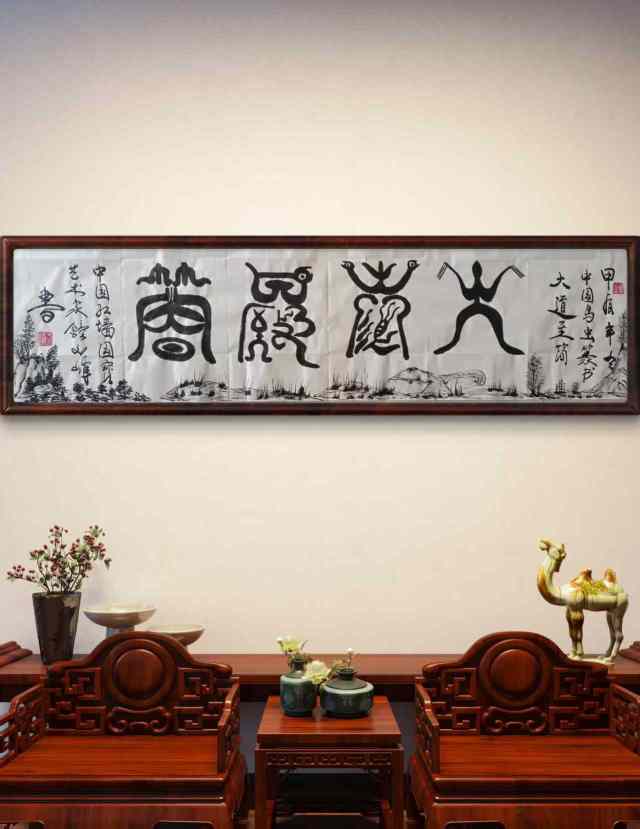 甲辰年
中国鸟虫篆书
大道至简
大道至简
中国红墙国宾
艺术家